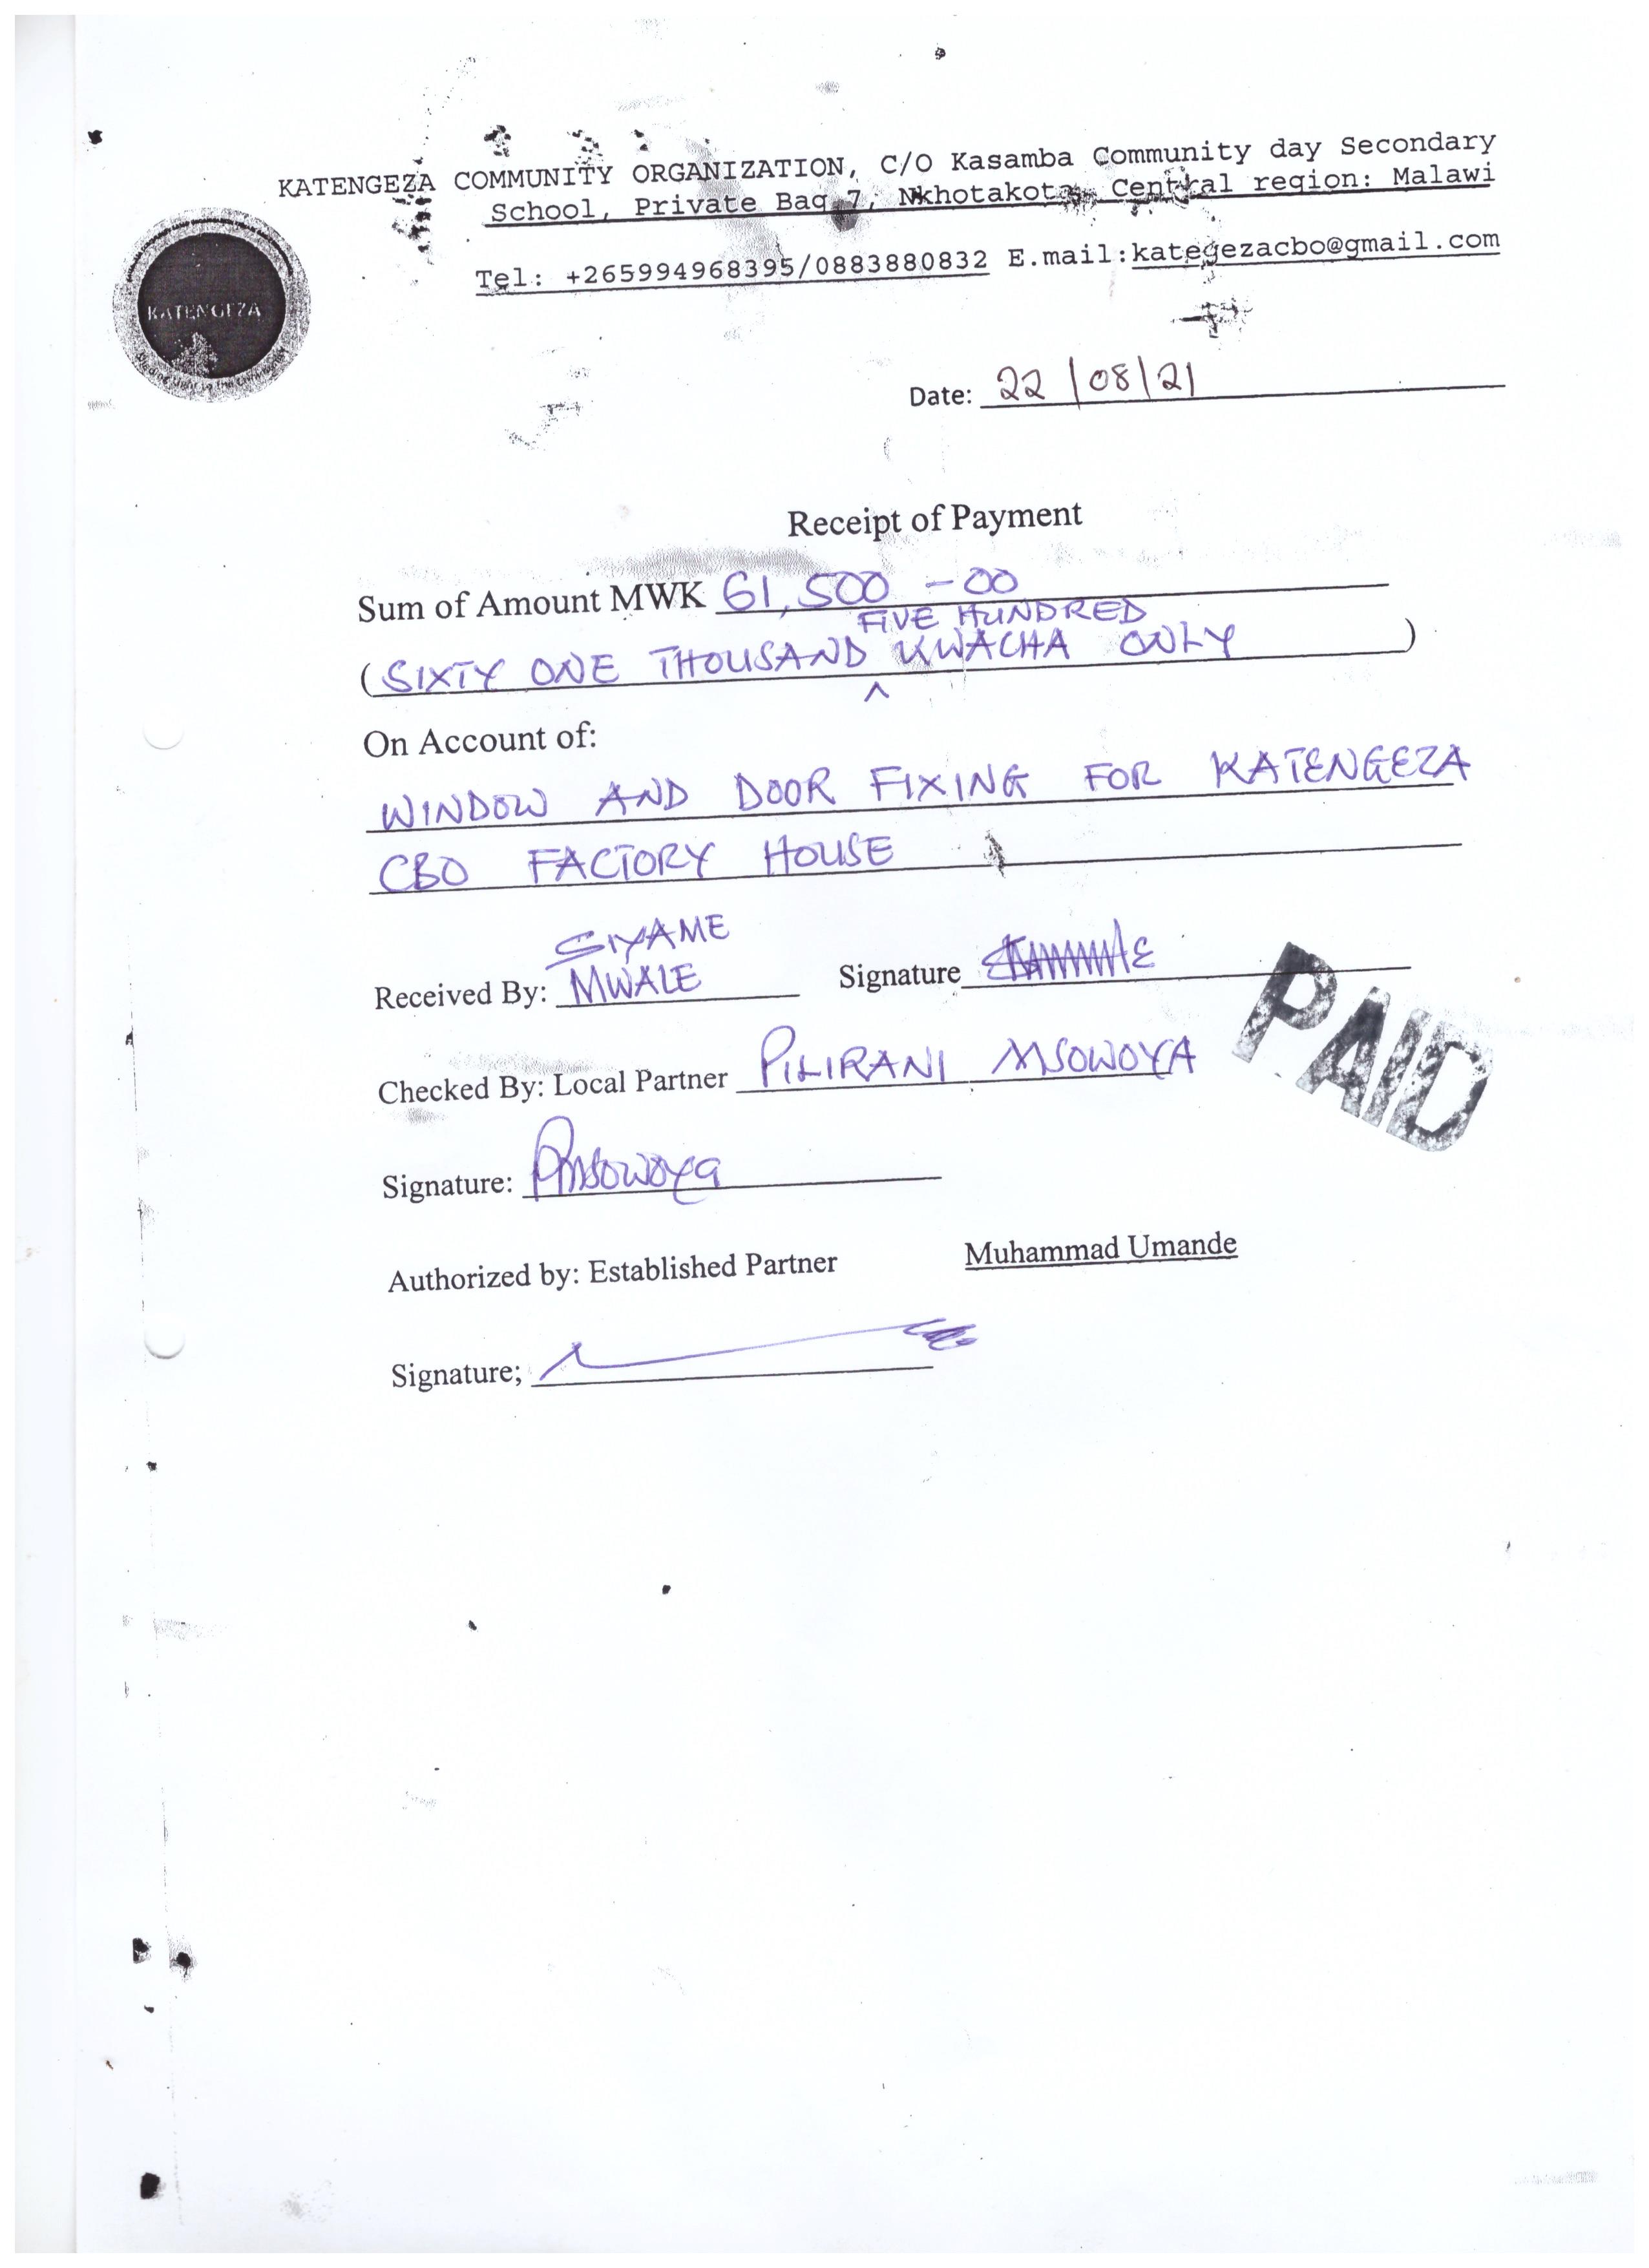 KATENGEZA COMMUNITY ORGANIZATION, C/O Kasamba Community day Secondary
School, Private Bag 7, Nkhotakota, Central region: Malawi
Tel: +265994968395/0883880832 E.mail:kategezacbo@gmail.com
KATENGEZA
Date: 22/08/21
Receipt of Payment
Sum of Amount MWK 61,500-00
FIVE HUNDRED
(SIXTY ONE THOUSAND ^ KWACHA ONLY)
On Account of:
WINDOW AND DOOR FIXING FOR KATENGEZA
CBO FACTORY HOUSE
SIYAME
Received By: MWALE Signature
PAID
Checked By: Local Partner PILIRANI MSOWOYA
Signature: PMsowoya
Authorized by: Established Partner Muhammad Umande
Signature;